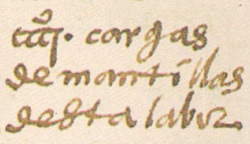 cargas
de mantillas
desta labor